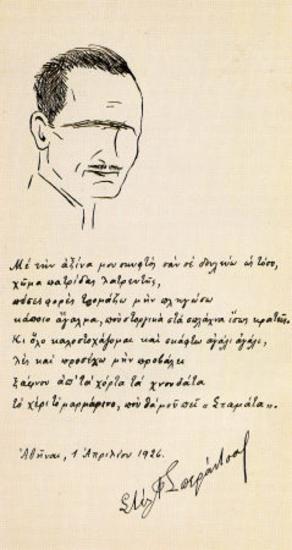 Μὲ τὴν ἀξίνα μου σκυφτὸς σὰν σὲ δουλεύω ὡς τόσο,
χῶμα πατρίδας λατρευτῆς,
πόσες φορὲς τρομάζω μὴν πληγώσω
κάποιο ἄγαλμα, ποὺ στοργικὰ στὰ σπλάχνα ἴσως κρατεῖς.
Κι ὅλο καλοστοχάζομαι καὶ σκάφτω ἀγάλι ἀγάλι,
λὲς καὶ προσέχω μὴν προβάλει
ξάφνου ἀπ' τὰ χόρτα τὰ χνουδάτα
τὸ χέρι τὸ μαρμάρινο, ποὺ θὰ μοῦ πεῖ "Σταμάτα".
Ἀθῆναι, 1 Ἀπριλίου 1926.
Στέλ. Σπεράντσας